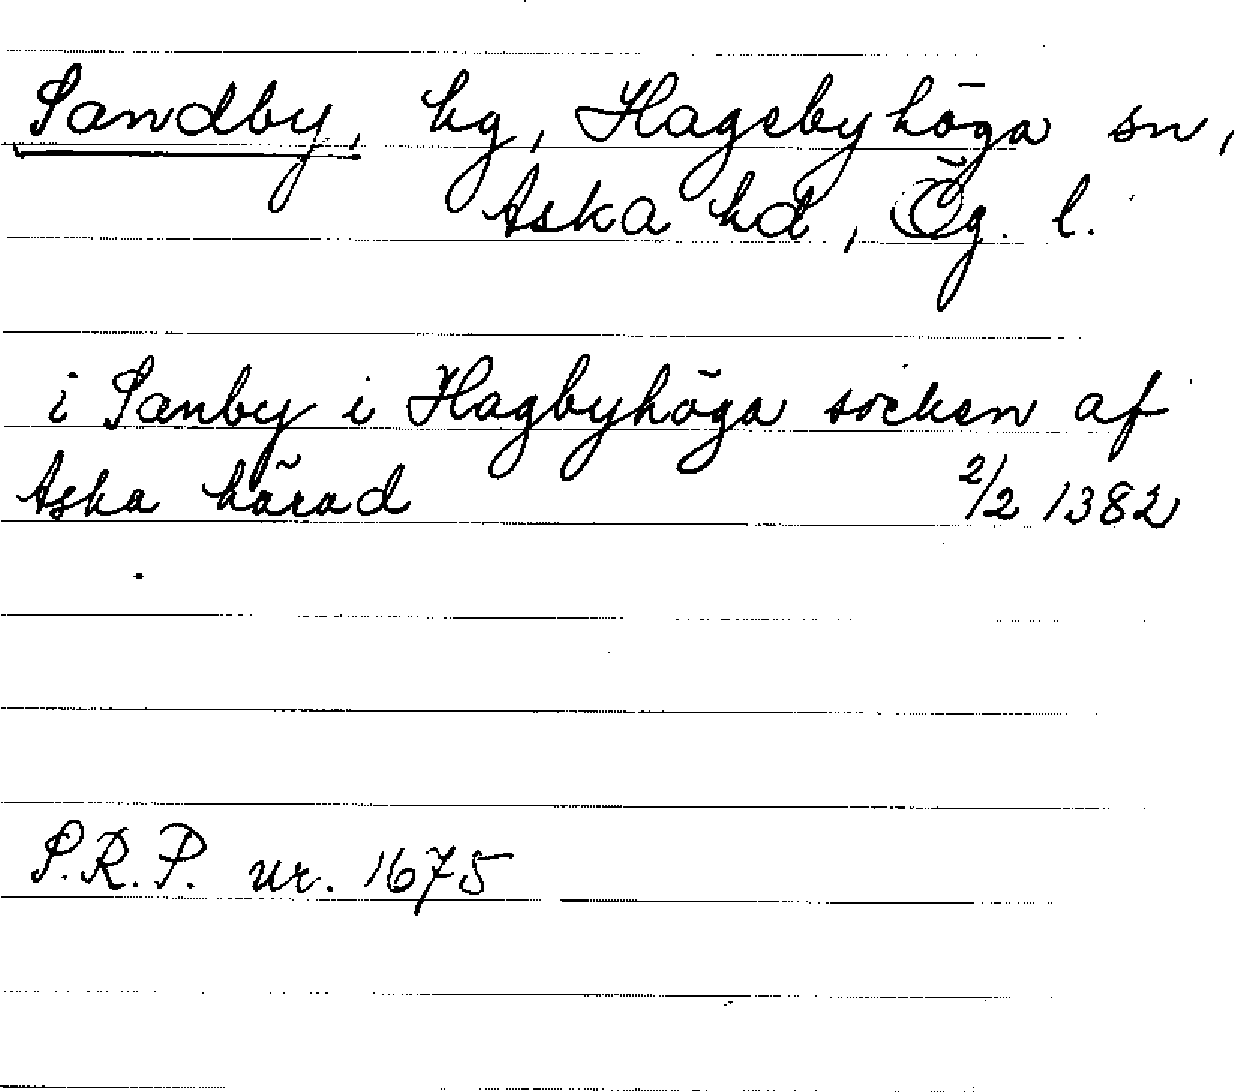 Sandby, hg, Hagebyhöga sn,
Aska hd, Ög. l.
i Sanby i Hagbyhöga socken af
Aska härad 2/2 1382
S.R.P. nr. 1675